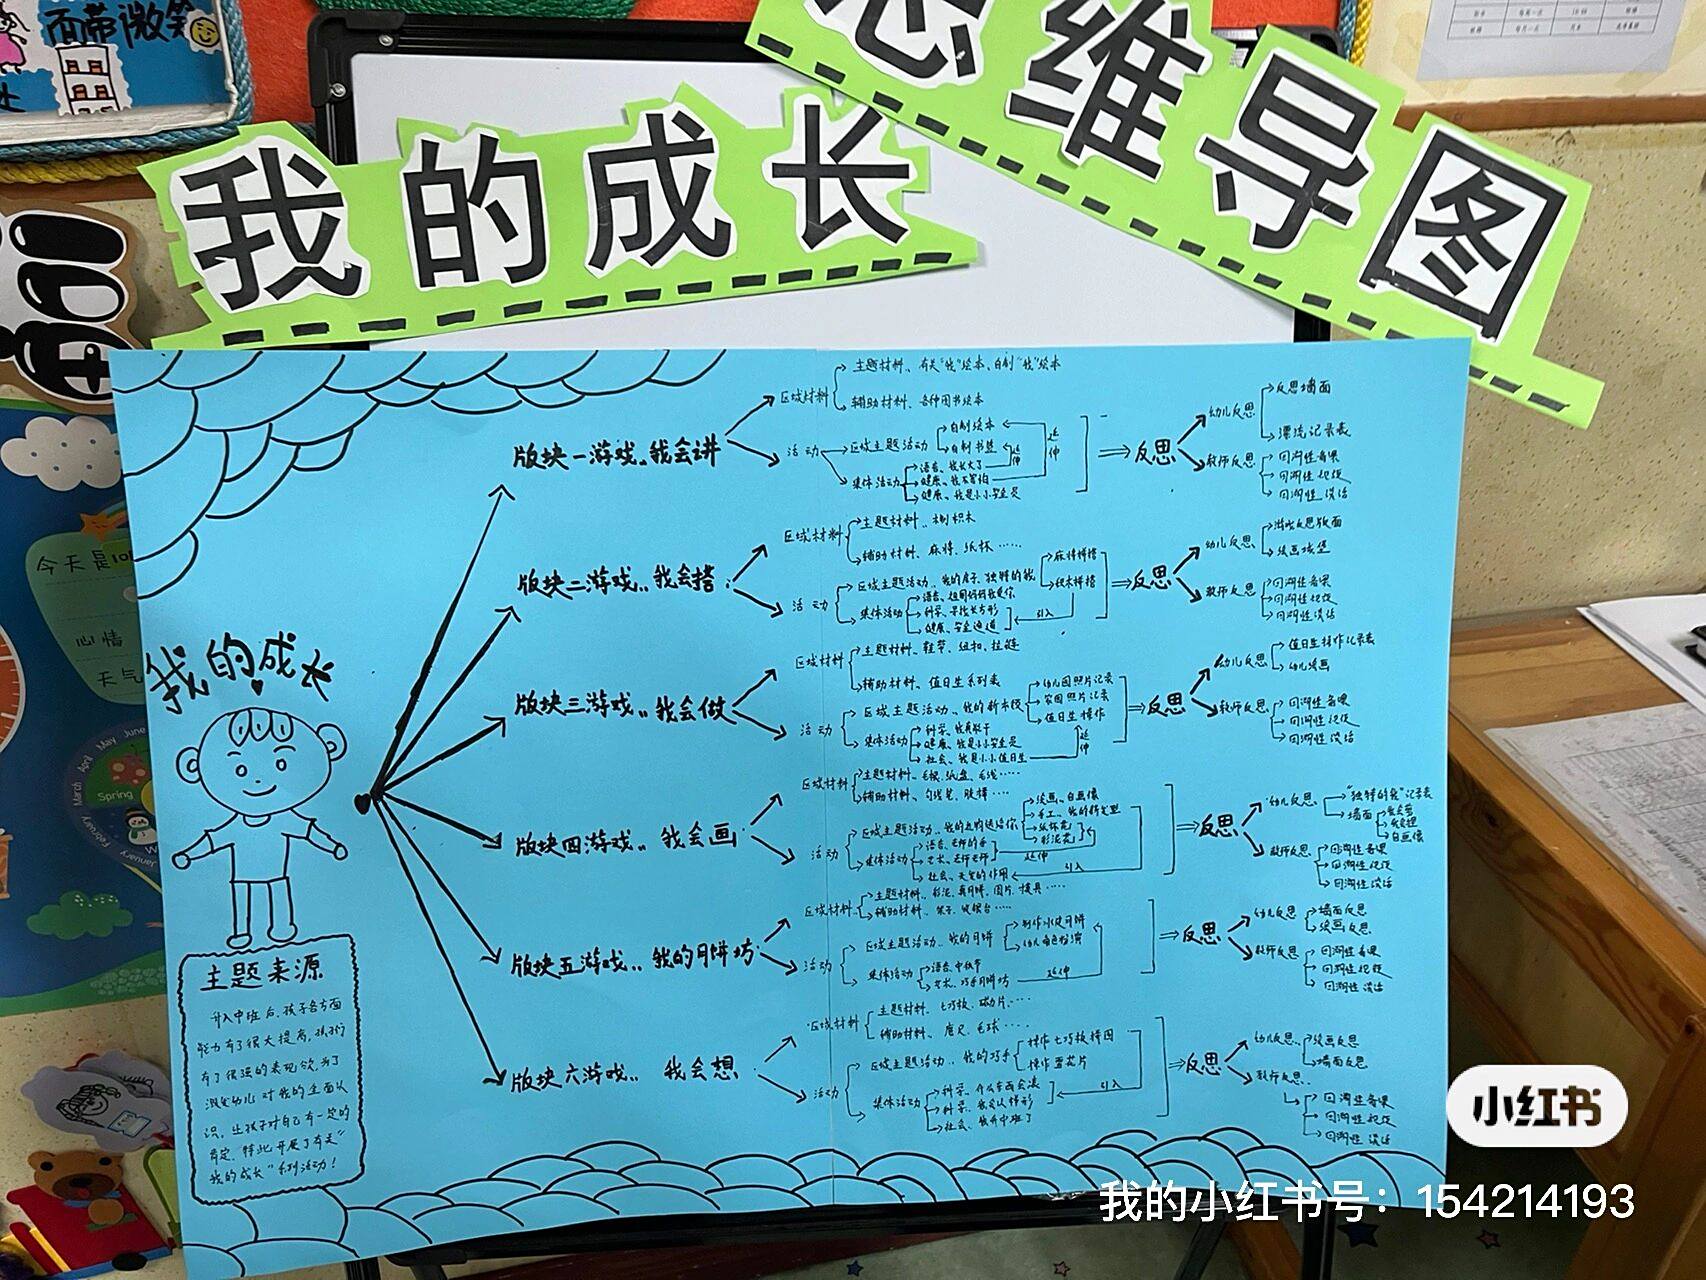 面带微笑
我的成长
思维导图
今天是10
心情
天气
March April May June
Spring
February
January
我的成长
主题来源
升入中班后,孩子各方面
能力有了很大提高,孩子们
有了很强的表现欲,为了
激发幼儿对我的全面认
识,让孩子对自己有一定的
肯定,特此开展了有关“
我的成长”系列活动!
版块一游戏..我会讲
区域材料
主题材料、有关“我”绘本、自制“我”绘本
辅助材料、各种图书绘本
活动
区域主题活动
自制绘本
自制书签
延伸
延伸
集体活动
语言、我长大了
健康、我不害怕
健康、我是小小安全员
反思
幼儿反思
反思墙面
漂流记录表
教师反思
回溯性备课
回溯性视频
回溯性谈话
版块二游戏..我会搭
区域材料
主题材料..木制积木
辅助材料、麻将、纸杯……
活动
区域主题活动..我的房子、独特的我
麻将拼搭
积木拼搭
集体活动
科学、寻找长方形
健康、安全通道
引入
反思
幼儿反思
游戏反思版面
绘画城堡
教师反思
回溯性备课
回溯性视频
回溯性谈话
版块三游戏..我会做
区域材料
主题材料、鞋带、纽扣、拉链
辅助材料、值日生系列表
活动
区域主题活动、我的新本领
幼儿园照片记录
家园照片记录
值日生操作
集体活动
科学、我真能干
健康、我是小小安全员
社会、我是小小值日生
延伸
反思
幼儿反思
值日生操作记录表
幼儿绘画
教师反思
回溯性备课
回溯性视频
回溯性谈话
版块四游戏..我会画
区域材料
主题材料、毛根、纸盘、毛线……
辅助材料、勾线笔、胶棒……
活动
区域主题活动..我的点购送给你
绘画、自画像
手工、我的新发型
纸杯花
彩泥花
集体活动
语言、老师的手
艺术、老师老师
社会、天安的作用
延伸
引入
反思
幼儿反思
“独特的我”记录表
墙面
自画像
教师反思
回溯性备课
回溯性视频
回溯性谈话
版块五游戏..我的月饼坊
区域材料
主题材料..彩泥、真月饼、图片、模具……
辅助材料、架子、收银台……
活动
区域主题活动..我的月饼
制作冰皮月饼
幼儿角色扮演
集体活动
语言、中秋节
艺术、巧手月饼坊
延伸
反思
幼儿反思
墙面反思
绘画反思
教师反思
回溯性备课
回溯性视频
回溯性谈话
版块六游戏..我会想
区域材料
主题材料、七巧板、磁力片……
辅助材料、尺、毛球……
活动
区域主题活动..我的巧手
操作七巧板拼图
操作雪花片
集体活动
科学、什么东西会滚
科学、我会认梯形
社会、我升中班了
引入
反思
幼儿反思
绘画反思
墙面反思
教师反思
回溯性备课
回溯性视频
回溯性谈话
小红书
我的小红书号：154214193